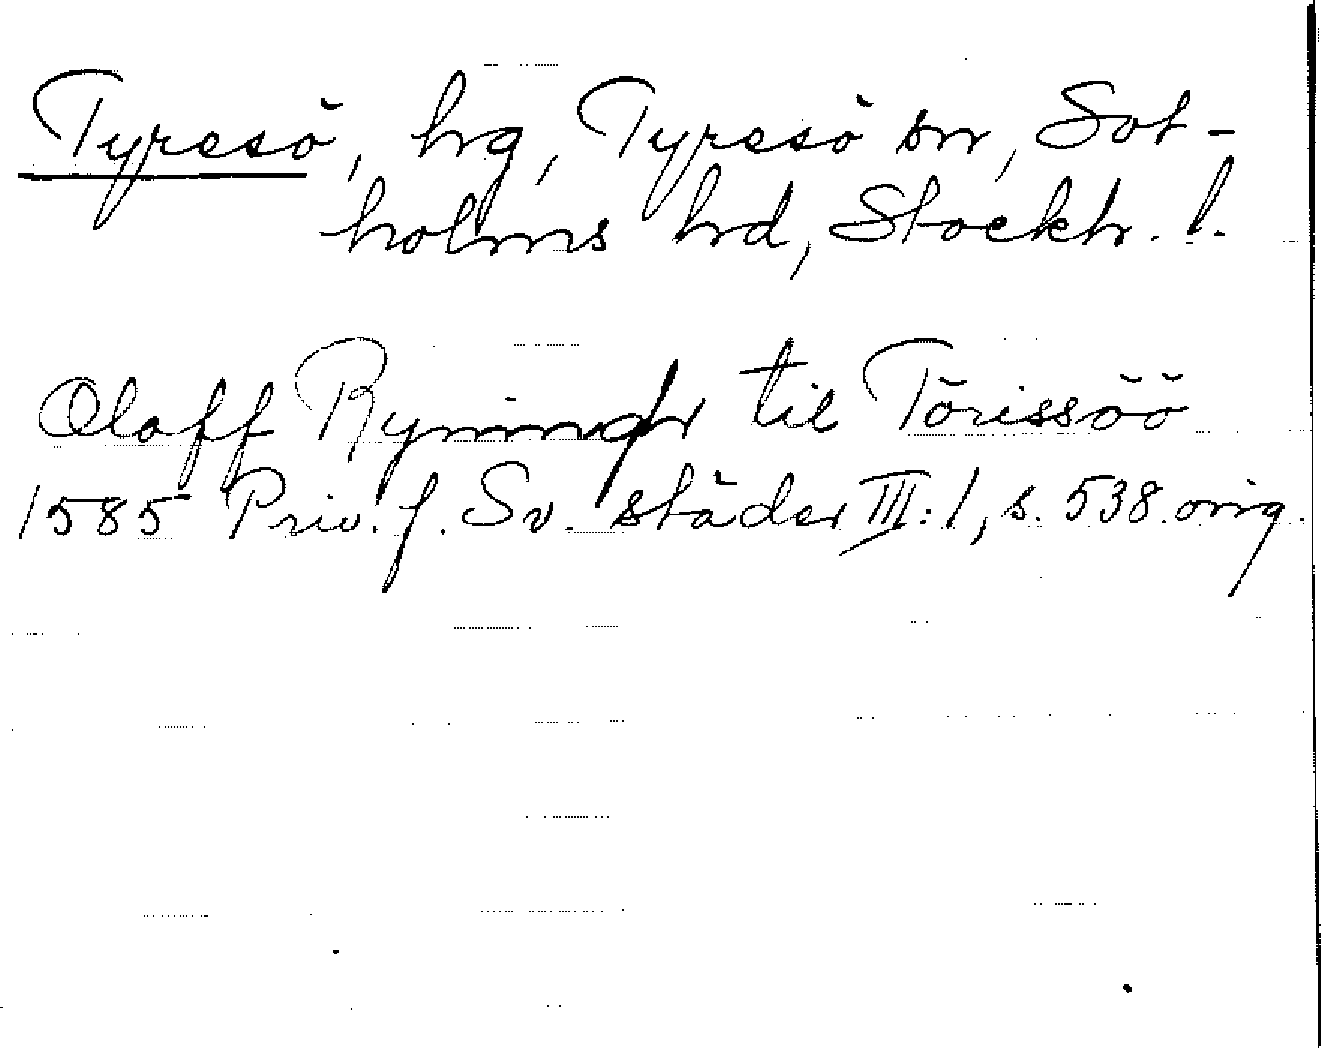 Tyresö, hg, Tyresö sn, Sot-
holms hd, Stockh. l.
Olaff Ryning til Törissöö
1585 Priv. f. Sv. städer III:1, s. 538. orig.